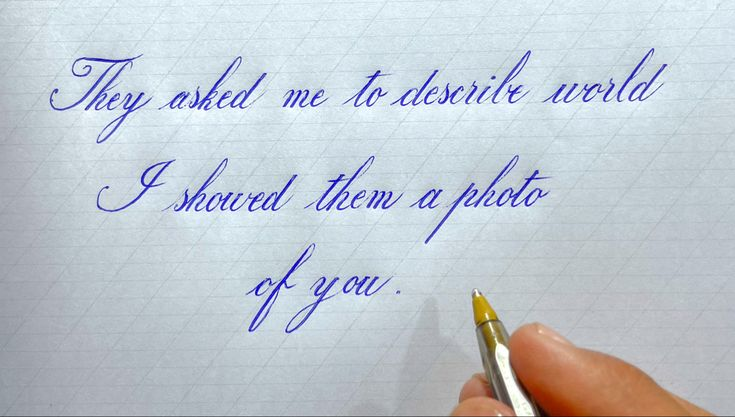 They asked me to describe world
I showed them a photo
of you.